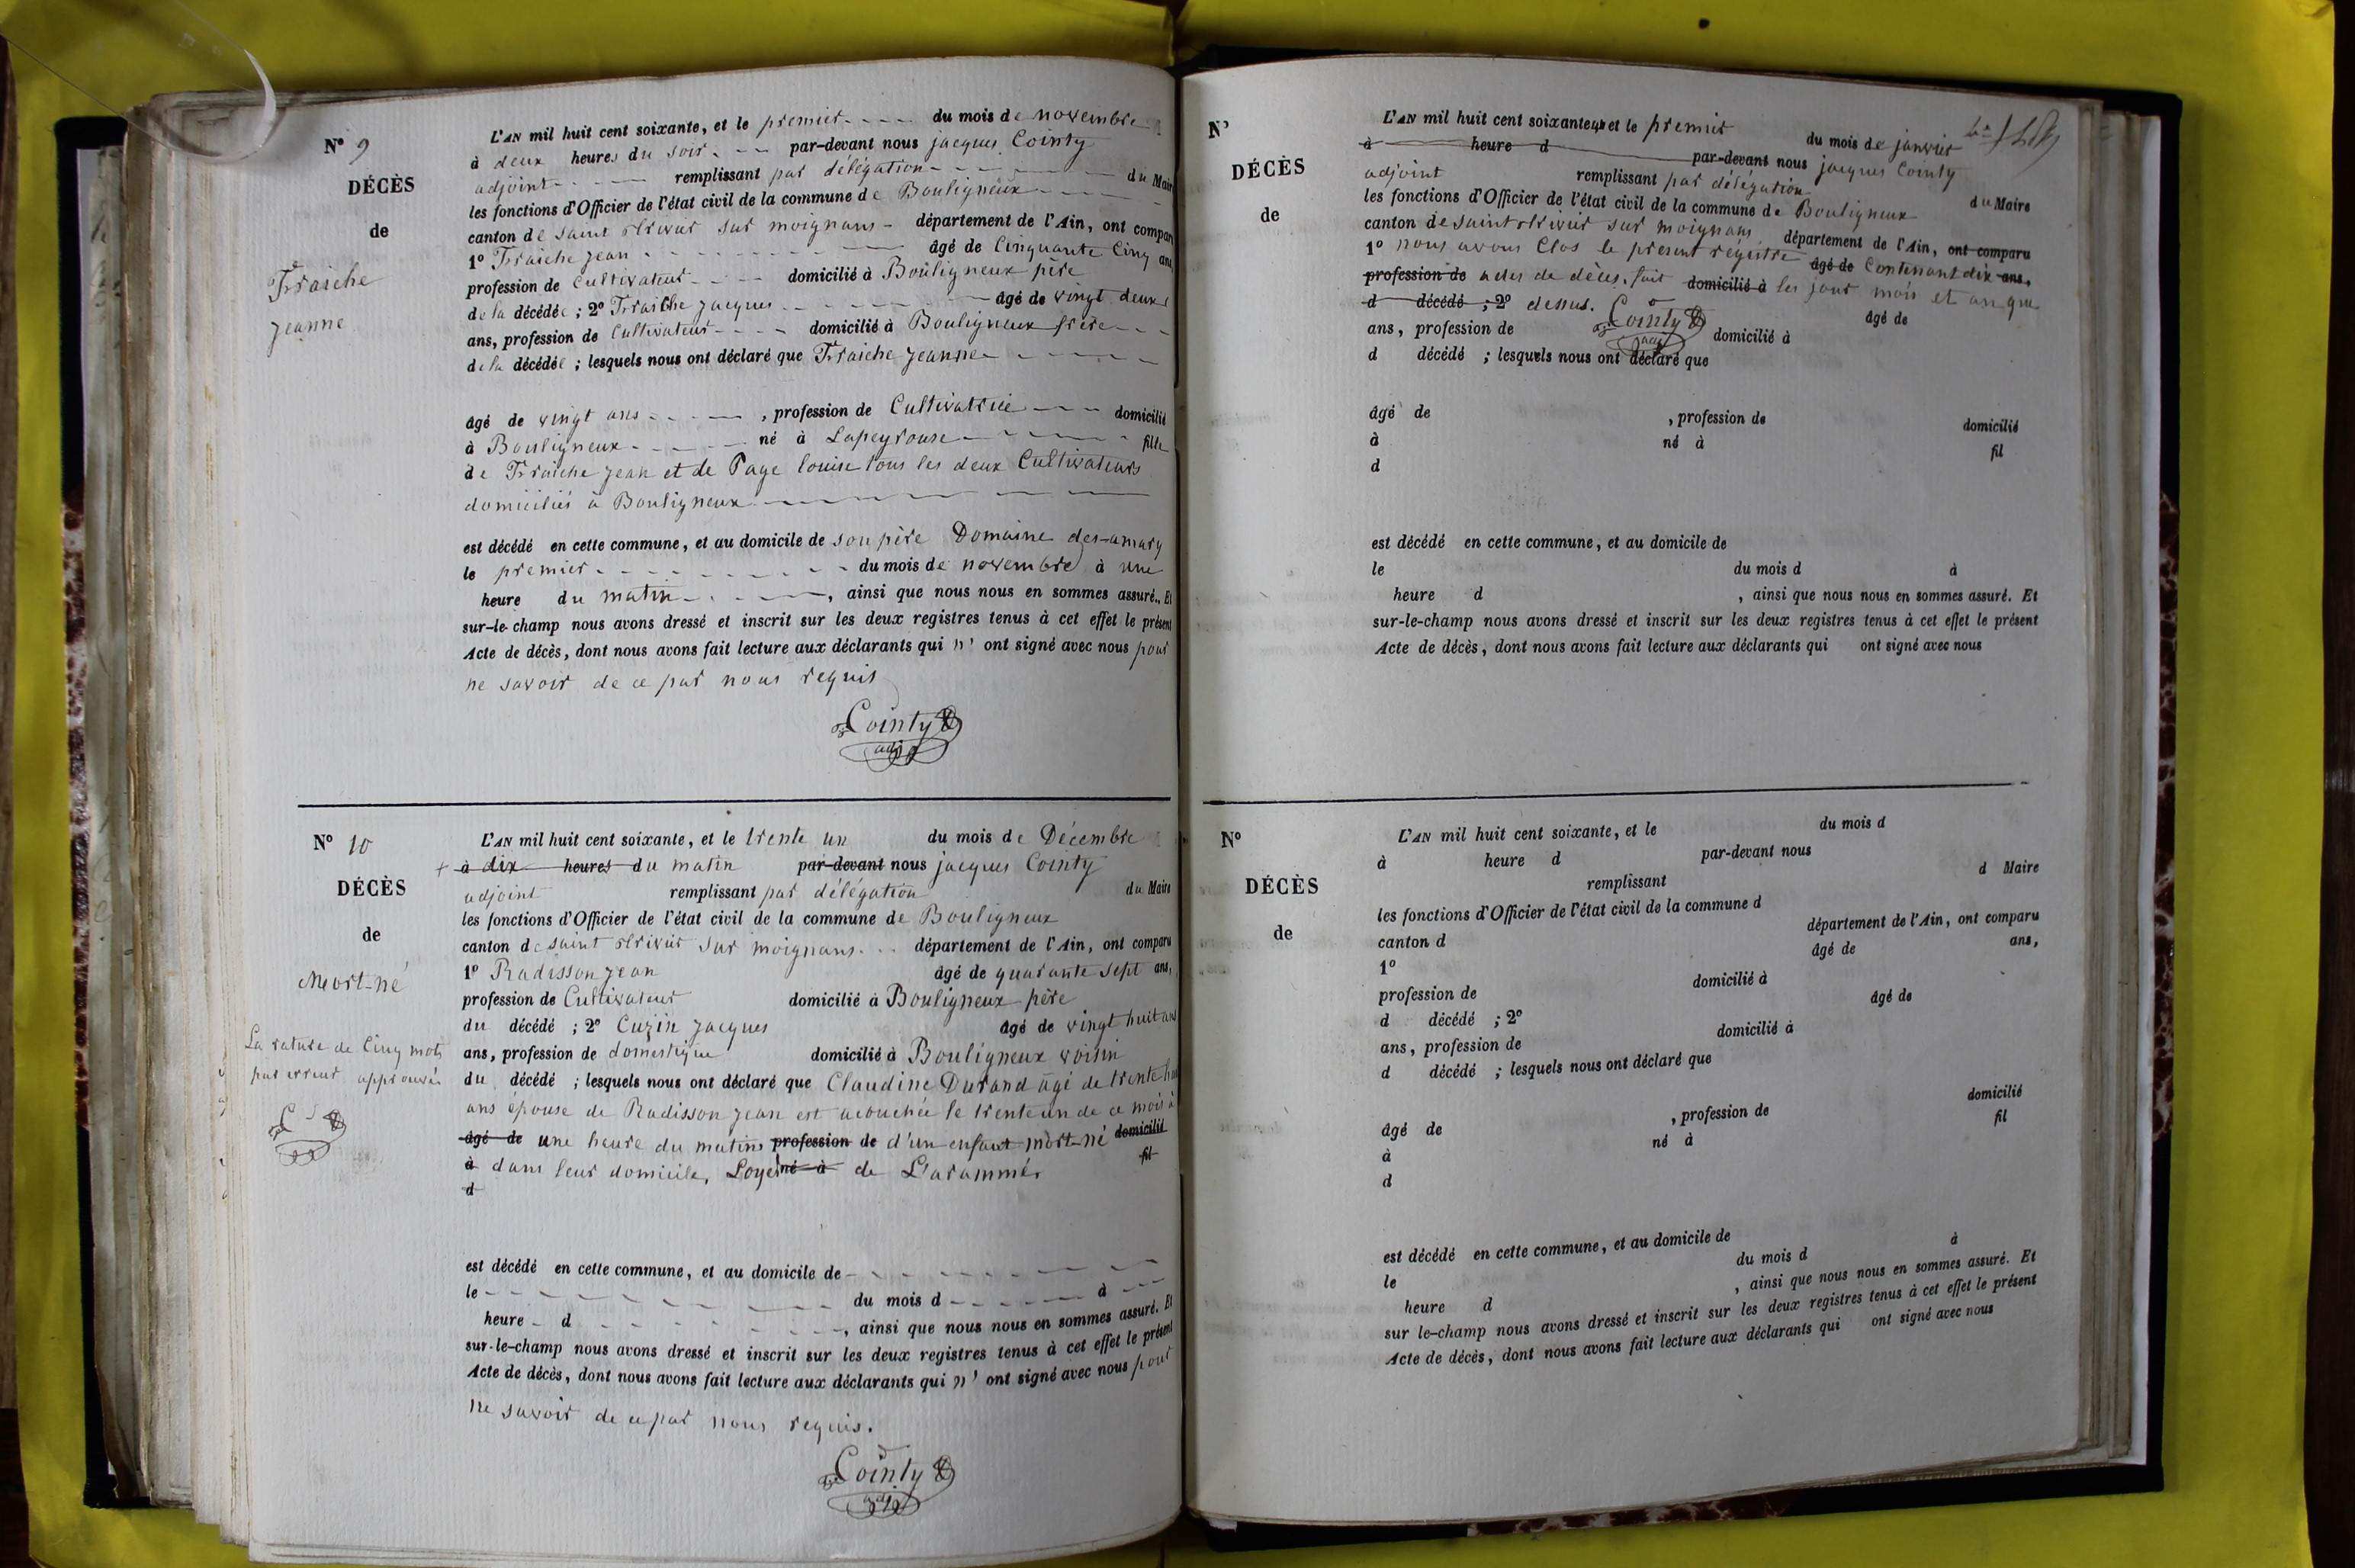 N° 9
DÉCÈS
de
Fraiche
Jeanne
L'AN mil huit cent soixante, et le premier du mois de novembre
à deux heures du soir par-devant nous jacques Cointy
adjoint remplissant par délégation du Maire
les fonctions d'Officier de l'état civil de la commune de Bouligneux
canton de saint trivier sur moignans département de l'Ain, ont comparu
1° Fraiche jean âgé de Cinquante Cinq ans,
profession de Cultivateur domicilié à Bouligneux père
de la décédée ; 2° Fraiche jacques âgé de vingt deux
ans, profession de Cultivateur domicilié à Bouligneux frère
de la décédée ; lesquels nous ont déclaré que Fraiche jeanne
âgé de vingt ans , profession de Cultivatrice domicilié
à Bouligneux né à Lapeyrouse fille
de Fraiche jean et de Page louise tous les deux Cultivateurs
domiciliés à Bouligneux
est décédé en cette commune, et au domicile de son père Domaine des-amary
le premier du mois de novembre à une
heure du matin , ainsi que nous nous en sommes assuré. Et
sur-le-champ nous avons dressé et inscrit sur les deux registres tenus à cet effet le présent
Acte de décès, dont nous avons fait lecture aux déclarants qui n' ont signé avec nous pour
ne savoir de ce par nous requis
Cointy
adj
N° 10
DÉCÈS
de
Mort-né
La rature de Cinq mots
par erreur approuvée
L'AN mil huit cent soixante, et le trente un du mois de Décembre
+ à dix heures du matin par-devant nous jacques Cointy
adjoint remplissant par délégation du Maire
les fonctions d'Officier de l'état civil de la commune de Bouligneux
canton de saint trivier sur moignans département de l'Ain, ont comparu
1° Radisson jean âgé de quarante sept ans,
profession de Cultivateur domicilié à Bouligneux père
du décédé ; 2° Cuzin jacques âgé de vingt huit ans
ans, profession de domestique domicilié à Bouligneux voisin
du décédé ; lesquels nous ont déclaré que Claudine Durand âgé de trente
ans épouse de Radisson jean est acouchée le trente un de ce mois à
âgé de une heure du matin profession de d'un enfant mort-né domicilié
à dans leur domicile, né à de fil
d
est décédé en cette commune, et au domicile de
le du mois d à
heure d , ainsi que nous nous en sommes assuré. Et
sur-le-champ nous avons dressé et inscrit sur les deux registres tenus à cet effet le présent
Acte de décès, dont nous avons fait lecture aux déclarants qui n' ont signé avec nous pour
ne savoir de ce par nous requis.
Cointy
adj
N°
DÉCÈS
de
L'AN mil huit cent soixante un et le premier du mois de janvier
à heure d par-devant nous jacques Cointy
adjoint remplissant par délégation du Maire
les fonctions d'Officier de l'état civil de la commune de Bouligneux
canton de saint trivier sur moignans département de l'Ain, ont comparu
1° nous avons Clos le present régistre âgé de Contenant dix ans,
profession de actes de décès, fait domicilié à les jour mois et an que
d décédé ; 2° dessus. Cointy âgé de
ans, profession de adj domicilié à
d décédé ; lesquels nous ont déclaré que
âgé de , profession de domicilié
à né à fil
d
est décédé en cette commune, et au domicile de
le du mois d à
heure d , ainsi que nous nous en sommes assuré. Et
sur-le-champ nous avons dressé et inscrit sur les deux registres tenus à cet effet le présent
Acte de décès, dont nous avons fait lecture aux déclarants qui ont signé avec nous
N°
DÉCÈS
de
L'AN mil huit cent soixante, et le du mois d
à heure d par-devant nous
remplissant d Maire
les fonctions d'Officier de l'état civil de la commune d
canton d département de l'Ain, ont comparu
1° âgé de ans,
profession de domicilié à
d décédé ; 2° âgé de
ans, profession de domicilié à
d décédé ; lesquels nous ont déclaré que
âgé de , profession de domicilié
à né à fil
d
est décédé en cette commune, et au domicile de
le du mois d à
heure d , ainsi que nous nous en sommes assuré. Et
sur le-champ nous avons dressé et inscrit sur les deux registres tenus à cet effet le présent
Acte de décès, dont nous avons fait lecture aux déclarants qui ont signé avec nous